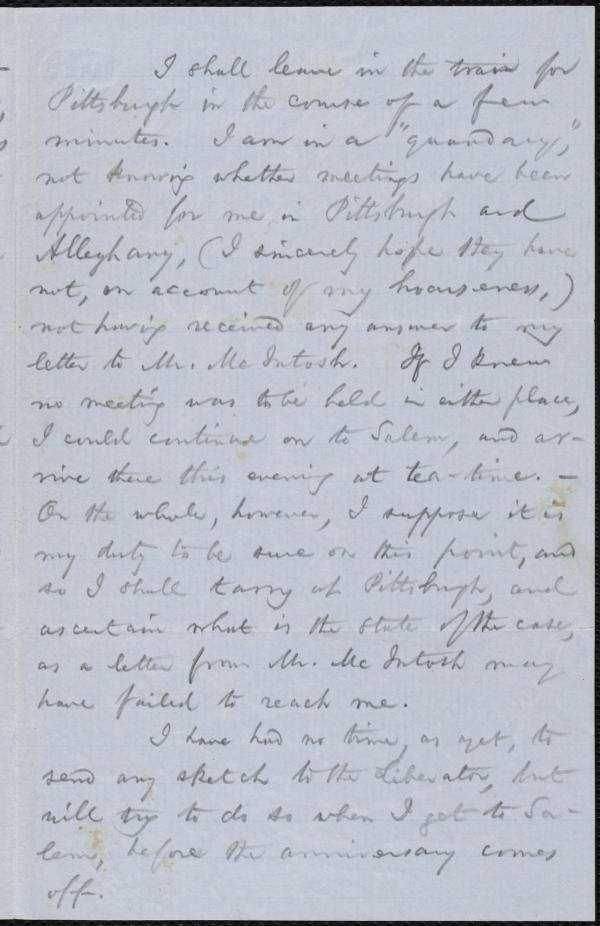 I shall leave in the train for
Pittsburgh in the course of a few
minutes. I am in a "quandary,"
not knowing whether meetings have been
appointed for me in Pittsburgh and
Alleghany, (I sincerely hope they have
not, on account of my hoarseness,)
not having received any answer to my
letter to Mr. McIntosh. If I knew
no meeting was to be held in either place,
I could continue on to Salem, and ar-
rive there this evening at tea-time. —
On the whole, however, I suppose it is
my duty to be sure on this point, and
so I shall tarry at Pittsburgh, and
ascertain what is the state of the case,
as a letter from Mr. McIntosh may
have failed to reach me.
I have had no time, as yet, to
send any sketch to the Liberator, but
will try to do so when I get to Sa-
lem, before the anniversary comes
off.